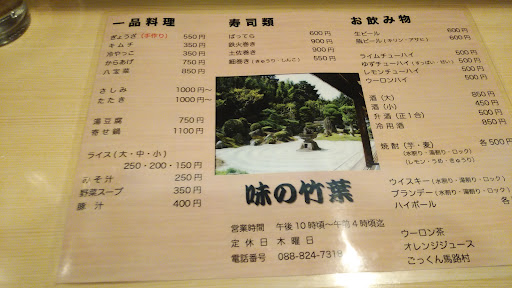 一品料理
ぎょうざ(手作り) 550円
キムチ 350円
冷やっこ 350円
からあげ 750円
八宝菜 850円
さしみ 1000円~
たたき 1000円~
湯豆腐 750円
寄せ鍋 1100円
ライス(大・中・小)
250・200・150円
みそ汁 250円
野菜スープ 350円
豚汁 400円
寿司類
ばってら 600円
鉄火巻き 900円
土佐巻き 900円
細巻き(きゅうり・しんこ) 550円
味の竹葉
営業時間 午後10時頃〜午前4時頃迄
定休日 木曜日
電話番号 088-824-7319
お飲み物
生ビール 600円
瓶ビール(キリン・アサヒ) 600円
ライムチューハイ
ゆずチューハイ(すっぱい・甘い) 500円
レモンチューハイ
ウーロンハイ
酒(大) 850円
酒(小) 450円
升酒(正1合) 500円
冷用酒 850円
焼酎(芋・麦) 各500円
(水割り・湯割り・ロック)
(レモン・うめ・きゅうり)
ウイスキー(水割り・湯割り・ロック)
ブランデー(水割り・湯割り・ロック)
ハイボール 各
ウーロン茶
オレンジジュース
ごっくん馬路村